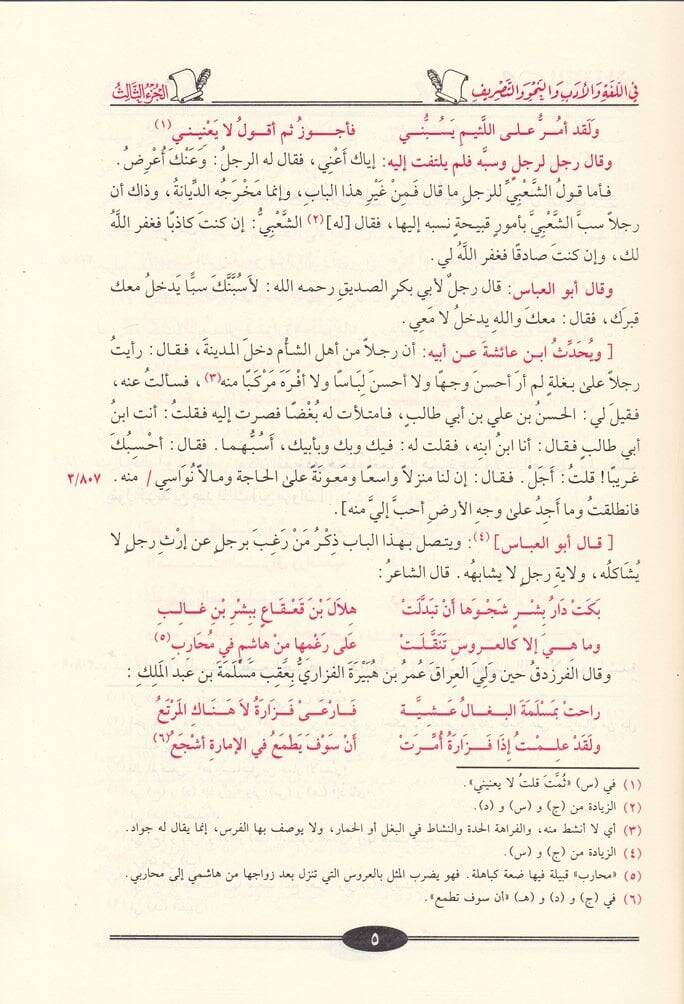 في اللغَة وَالأدَب وَالنحو وَالتَّصريف
الجُزءُ الثَّالِث
ولَقد أمُرُّ على اللَّئيمِ يَسُبُّني فأجوزُ ثم أقولُ لا يَعْنِيني(١)
وقال رجل لرجل وسبَّه فلم يلتفت إليه: إياك أعْني، فقال له الرجلُ: وَعَنْكَ أُعْرِضُ.
فـأما قـولُ الشَّعْبِيِّ للرجلِ ما قال فَمِنْ غَيْرِ هذا البابِ، وإنما مَخْرَجُه الدِّيانةُ، وذاك أن
رجلاً سبَّ الشَّعْبِيَّ بأمورٍ قبيحةٍ نسبه إليها، فقال [له](٢) الشَّعْبِيُّ: إن كنتَ كاذبًا فغفر اللَّهُ
لك، وإن كنتَ صادقًا فغفر اللَّهُ لي.
وقال أبو العباس: قال رجلٌ لأبي بكرٍ الصديقِ رحمه الله: لأسُبَّنَّكَ سبًّا يَدخلُ معك
قبرَك، فقال: معكَ واللهِ يدخلُ لا مَعِي.
[ ويُحَدِّثُ ابـن عائشةَ عـن أبيه: أن رجـلاً من أهل الشـأم دخلَ المدينة، فـقـال: رأيتُ
رجلاً علىٰ بغلةٍ لم أرَ أحسنَ وجـهًا ولا أحسنَ لِبَاسًا ولا أفْرَهَ مَرْكَبًا منه(٣)، فسألتُ عنه،
فـقيلَ لي: الحَسنُ بن علي بن أبي طالبٍ، فـامتلأت له بُغْضًا فـصرت إليه فقلتُ: أنت ابنُ
أبي طالبٍ فـقال: أنا ابنُ ابنِه، فـقلت له: فـيك وبك وبأبيك، أسُبُّهـما. فـقال: أحْسِبُكَ
غريبًا! قلتُ: أجَلْ. فـقال: إن لنا منزلاً واسعًا ومَعونَةً علىٰ الحاجة ومالاً نُواسِي/ منه. ٣/٨٠٧
فانطلقتُ وما أجِدُ علىٰ وجهِ الأرضِ أحبَّ إليَّ منه].
[ قـال أبو العبـاس](٤): ويتصل بـهذا الباب ذِكْرُ مَنْ رَغِبَ برجلٍ عن إرْثِ رجلٍ لا
يُشَاكلُه، ولايةِ رجلٍ لا يشابهُه. قال الشاعرُ:
بَكَتْ دَارُ بِشْرٍ شَجْوَها أنْ تَبَدَّلَتْ هِلَالَ بْنَ قَعْقَاعٍ بِبِشْرِ بْنِ غَالِبِ
وما هِيَ إلا كالعروسِ تَنَقَّلَتْ عَلى رَغْمِها مِنْ هاشمٍ في مُحَاربِ(٥)
وقال الفرزدقُ حين وَلِيَ العراقَ عُمرُ بن هُبَيْرَةَ الفزاريُّ بِعَقِبِ مَسْلَمَةَ بن عبد الملكِ:
راحتْ بمَسْلَمَةَ البغالُ عَشِيَّةً فَارعَىْ فَزَارَةُ لاَ هَنَاكِ المَرْتَعُ
ولَقَدْ علِمْتُ إذَا فَزَارَةُ أُمِّرَتْ أنْ سَوْفَ يَطْمَعُ في الإمارةِ أشْجَعُ(٦)
(١) في (س) «ثُمَّتَ قلتُ لا يعنيني».
(٢) الزيادة من (ج) و (س) و (د).
(٣) أي لا أنشط منه، والفراهة الحدة والنشاط في البغل أو الحمار، ولا يوصف بها الفرس، إنما يقال له جواد.
(٤) الزيادة من (ج) و (س).
(٥) «محارب» قبيلة فيها ضعة كباهلة. فهو يضرب المثل بالعروس التي تنزل بعد زواجها من هاشمي إلى محاربي.
(٦) في (ج) و (د) و (هـ) «أن سوف تطمع».
٥